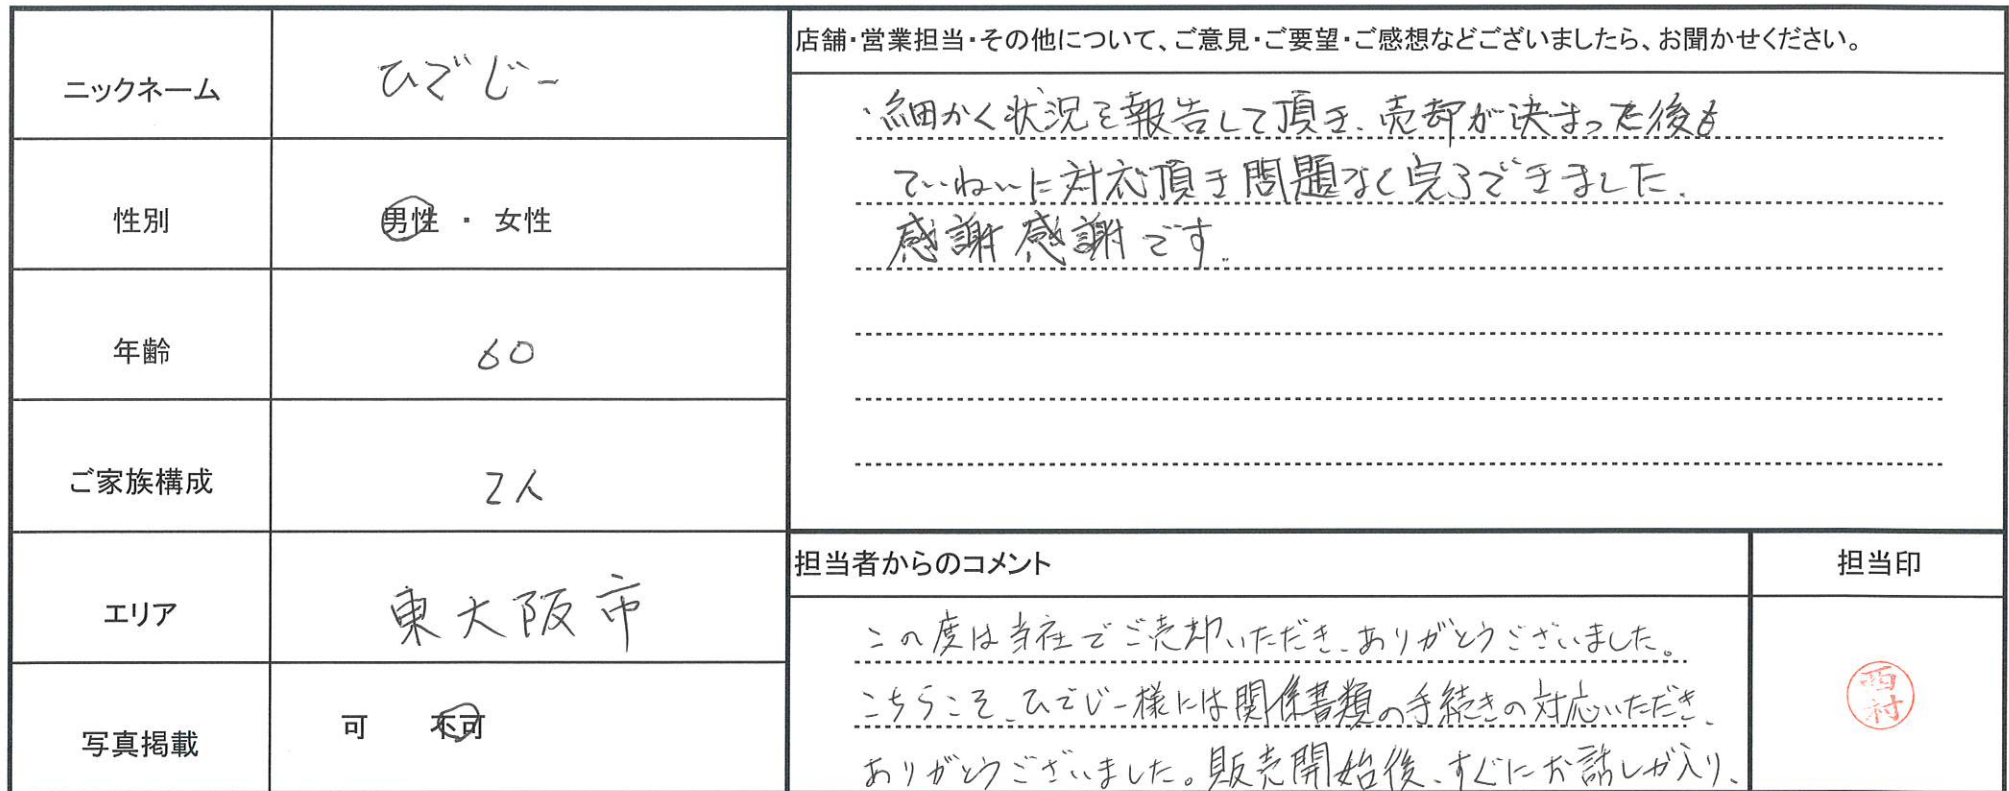 ニックネーム ひでじー
性別 男性 ・ 女性
年齢 60
ご家族構成 2人
エリア 東大阪市
写真掲載 可 不可
店舗・営業担当・その他について、ご意見・ご要望・ご感想などございましたら、お聞かせください。
・細かく状況を報告して頂き、売却が決まった後も
ていねいに対応頂き問題なく完了できました。
感謝感謝です。
担当者からのコメント
この度は当社でご売却いただき、ありがとうございました。
こちらこそ、ひでじー様には関係書類の手続きの対応いただき、
ありがとうございました。販売開始後、すぐにお話しが入り、
担当印
西村